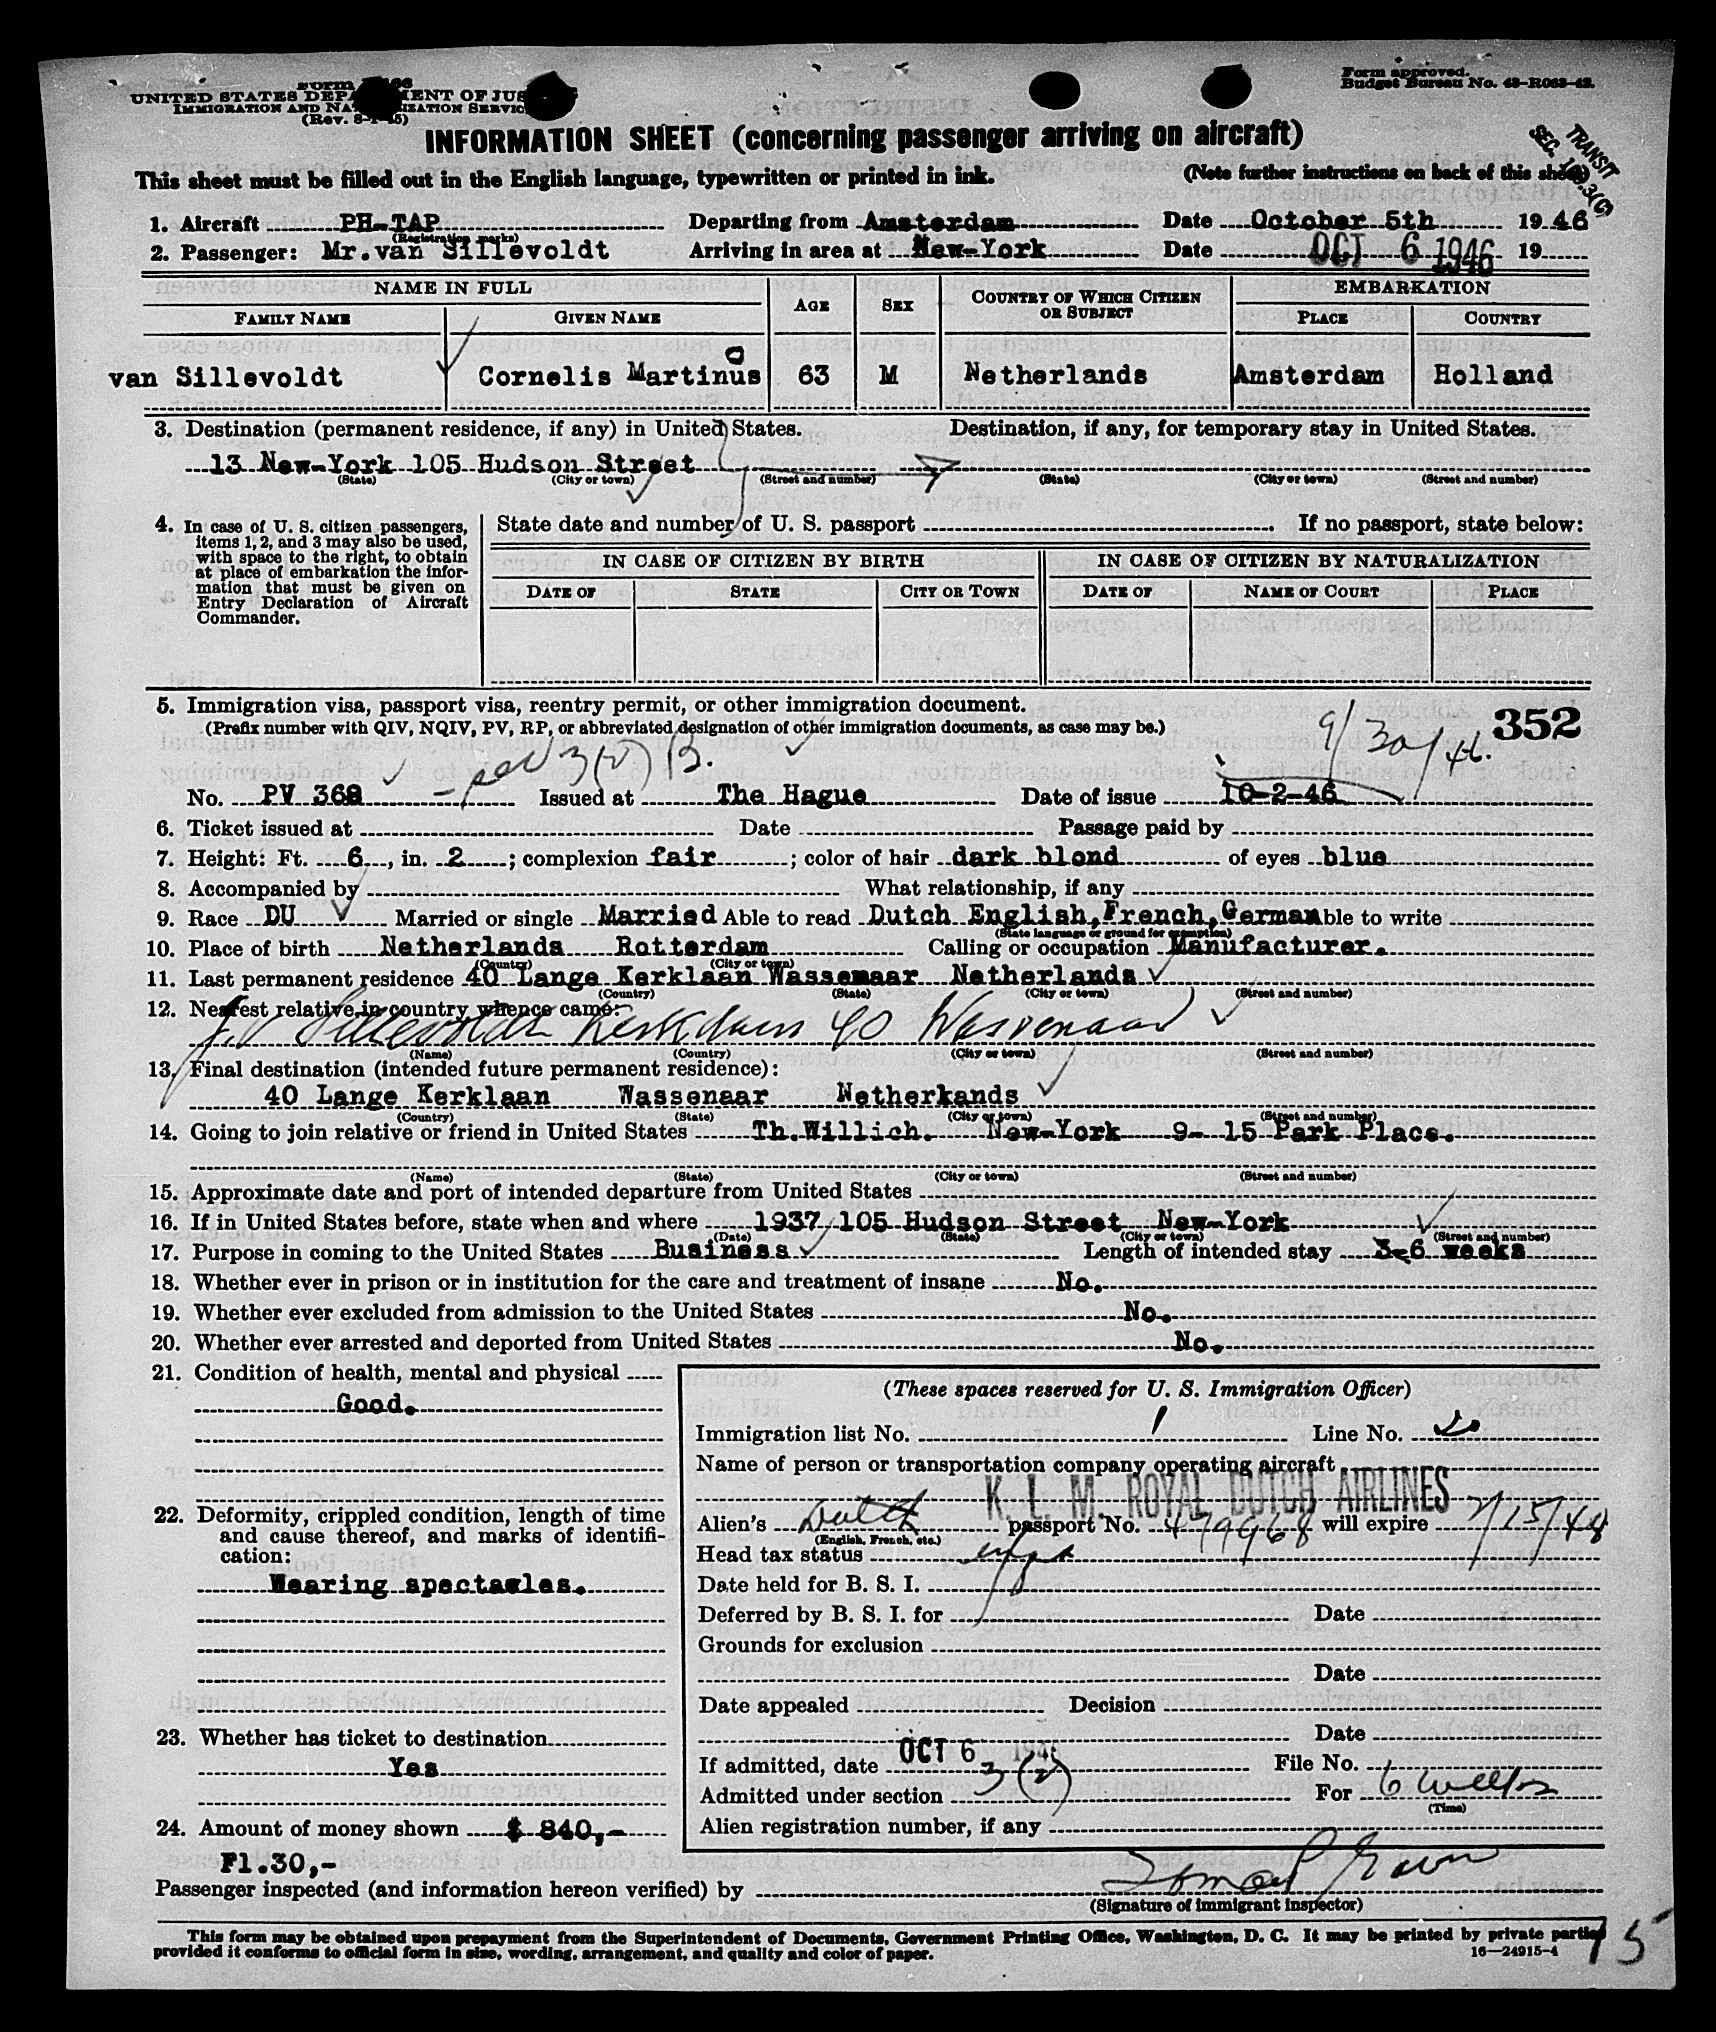 Form approved.
Budget Bureau No. 43-R063-42.
UNITED STATES DEPARTMENT OF JUS
IMMIGRATION AND NATURALIZATION SERVIC
(Rev. 8-1-45)
TRANSIT
SEC.
INFORMATION SHEET (concerning passenger arriving on aircraft)
This sheet must be filled out in the English language, typewritten or printed in ink. (Note further instructions on back of this sheet)
1. Aircraft PH-TAP Departing from Amsterdam Date October 5th 1946
(Registration marks)
2. Passenger: Mr.van Sillevoldt Arriving in area at New-York Date OCT 6 1946 19
NAME IN FULL AGE SEX COUNTRY OF WHICH CITIZEN OR SUBJECT EMBARKATION
FAMILY NAME GIVEN NAME PLACE COUNTRY
van Sillevoldt Cornelis Martinus 63 M Netherlands Amsterdam Holland
3. Destination (permanent residence, if any) in United States. Destination, if any, for temporary stay in United States.
13 New-York 105 Hudson Street
(State) (City or town) (Street and number) (State) (City or town) (Street and number)
4. In case of U. S. citizen passengers, items 1, 2, and 3 may also be used, with space to the right, to obtain at place of embarkation the information that must be given on Entry Declaration of Aircraft Commander.
State date and number of U. S. passport If no passport, state below:
IN CASE OF CITIZEN BY BIRTH IN CASE OF CITIZEN BY NATURALIZATION
DATE OF STATE CITY OR TOWN DATE OF NAME OF COURT PLACE
5. Immigration visa, passport visa, reentry permit, or other immigration document.
(Prefix number with QIV, NQIV, PV, RP, or abbreviated designation of other immigration documents, as case may be.)
352
9/30/46.
3(2) B.
No. PV 368 Issued at The Hague Date of issue 10-2-46
6. Ticket issued at Date Passage paid by
7. Height: Ft. 6, in. 2; complexion fair; color of hair dark blond of eyes blue
8. Accompanied by What relationship, if any
9. Race DU Married or single Married Able to read Dutch English,French,German able to write
(State language or ground for exemption)
10. Place of birth Netherlands Rotterdam Calling or occupation Manufacturer.
(Country) (City or town)
11. Last permanent residence 40 Lange Kerklaan Wassemaar Netherlands
(Country) (State) (City or town) (Street and number)
12. Nearest relative in country whence came:
Sillevoldt Kerklaan 40 Wassenaar
(Name) (Country) (City or town) (Street and number)
13. Final destination (intended future permanent residence):
40 Lange Kerklaan Wassenaar Netherkands
(Country) (State) (City or town) (Street and number)
14. Going to join relative or friend in United States Th.Willich. New-York 9- 15 Park Place.
(Name) (State) (City or town) (Street and number)
15. Approximate date and port of intended departure from United States
16. If in United States before, state when and where 1937, 105 Hudson Street New-York
(Date) (State) (City or town) (Street and number)
17. Purpose in coming to the United States Business Length of intended stay 3-6 weeks
18. Whether ever in prison or in institution for the care and treatment of insane No.
19. Whether ever excluded from admission to the United States No.
20. Whether ever arrested and deported from United States No.
21. Condition of health, mental and physical
Good.
22. Deformity, crippled condition, length of time and cause thereof, and marks of identification:
Wearing spectacles.
23. Whether has ticket to destination
Yes
24. Amount of money shown $ 840,-
Fl.30,-
(These spaces reserved for U. S. Immigration Officer)
Immigration list No. 1 Line No. 20
Name of person or transportation company operating aircraft
K. L. M. ROYAL DUTCH AIRLINES
Alien's Dutch passport No. 479968 will expire 7/15/48
(English, French, etc.)
Head tax status
Date held for B. S. I.
Deferred by B. S. I. for Date
Grounds for exclusion
Date
Date appealed Decision
Date
If admitted, date OCT 6 1946 File No.
Admitted under section 3(2) For 6 weeks
(Time)
Alien registration number, if any
Passenger inspected (and information hereon verified) by
(Signature of immigrant inspector)
This form may be obtained upon prepayment from the Superintendent of Documents, Government Printing Office, Washington, D. C. It may be printed by private parties
provided it conforms to official form in size, wording, arrangement, and quality and color of paper. 16—24915-4
15